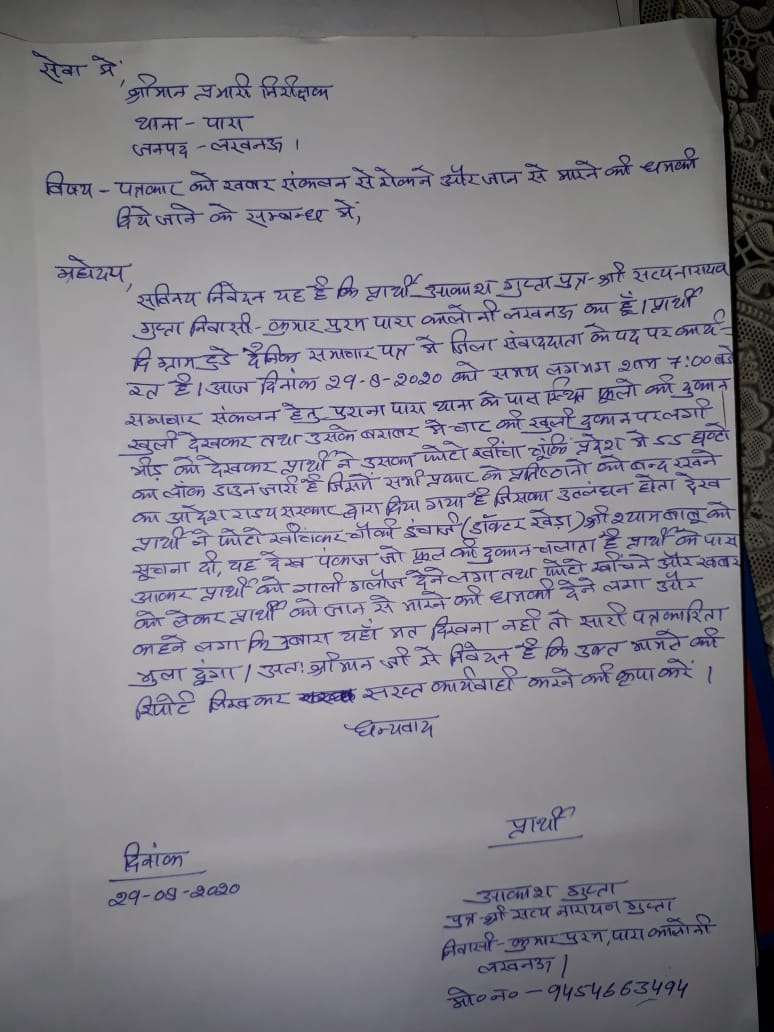 सेवा में,
श्रीमान प्रभारी निरीक्षक
थाना - पारा
जनपद - लखनऊ ।
विषय - पत्रकार को खबर संकलन से रोकने और जान से मारने की धमकी
दिये जाने के सम्बन्ध में,
महोदय,
सविनय निवेदन यह है कि प्रार्थी आकाश गुप्ता पुत्र - श्री सत्यनारायण
गुप्ता निवासी - कुमार पुरम पारा कालोनी लखनऊ का हूँ। प्रार्थी
दि ग्राम टुडे दैनिक समाचार पत्र में जिला संवाददाता के पद पर कार्य-
रत है। आज दिनांक 29-8-2020 को समय लगभग शाम 7:00 बजे
समाचार संकलन हेतु पुराना पारा थाना के पास स्थित फूलो की दुकान
खुली देखकर तथा उसके बराबर में चाट की खुली दुकान पर लगी
भीड़ को देखकर प्रार्थी ने उसका फोटो खींचा चूंकि प्रदेश में 55 घण्टो
का लॉक डाउन जारी है जिसमें सभी प्रकार के प्रतिष्ठानो को बन्द रखने
का आदेश राज्य सरकार द्वारा दिया गया है जिसका उलंघन होता देख
प्रार्थी ने फोटो खींचकर चौकी इंचार्ज (डॉक्टर खेड़ा) श्री श्याम बाबू को
सूचना दी, यह देख पंकज जो फूल की दुकान चलाता है प्रार्थी के पास
आकर प्रार्थी को गाली गलौज देने लगा तथा फोटो खींचने और खबर
को लेकर प्रार्थी को जान से मारने की धमकी देने लगा और
कहने लगा कि दुबारा यहाँ मत दिखना नही तो सारी पत्रकारिता
भुला दूंगा। अतः श्रीमान जी से निवेदन है कि उक्त मामले की
रिपोर्ट लिखकर सख्त कार्यवाही करने की कृपा करें ।
धन्यवाद
प्रार्थी
दिनांक
29-08-2020
आकाश गुप्ता
पुत्र - श्री सत्य नारायण गुप्ता
निवासी - कुमार पुरम, पारा कालोनी
लखनऊ।
मो० न० - 9454663494